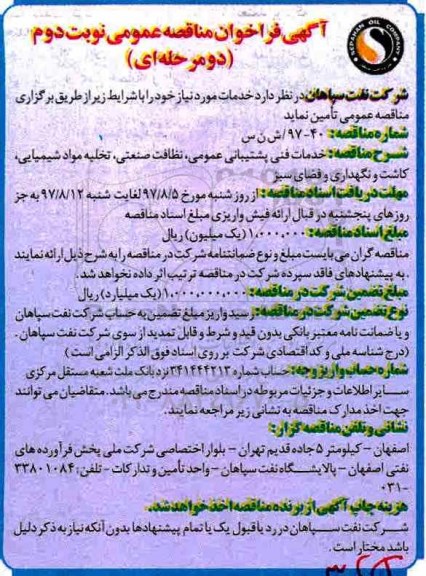 SEPAHAN OIL COMPANY
آگهی فراخوان مناقصه عمومی نوبت دوم
(دو مرحله‌ای)
شرکت نفت سپاهان در نظر دارد خدمات مورد نیاز خود را با شرایط زیر از طریق برگزاری
مناقصه عمومی تأمین نماید
شماره مناقصه: ۹۷-۴۰/ش ن س
شرح مناقصه: خدمات فنی پشتیبانی عمومی، نظافت صنعتی، تخلیه مواد شیمیایی،
کاشت و نگهداری و فضای سبز
مهلت دریافت اسناد مناقصه: از روز شنبه مورخ ۹۷/۸/۵ لغایت شنبه ۹۷/۸/۱۲ به جز
روزهای پنجشنبه در قبال ارائه فیش واریزی مبلغ اسناد مناقصه
مبلغ اسناد مناقصه: ۱,۰۰۰,۰۰۰ (یک میلیون) ریال
مناقصه گران می بایست مبلغ و نوع ضمانتنامه شرکت در مناقصه را به شرح ذیل ارائه نمایند
. به پیشنهادهای فاقد سپرده شرکت در مناقصه ترتیب اثر داده نخواهد شد.
مبلغ تضمین شرکت در مناقصه: ۱,۰۰۰,۰۰۰,۰۰۰ (یک میلیارد) ریال
نوع تضمین شرکت در مناقصه: رسید واریز مبلغ تضمین به حساب شرکت نفت سپاهان
و یا ضمانت نامه معتبر بانکی بدون قید و شرط و قابل تمدید از سوی شرکت نفت سپاهان .
(درج شناسه ملی و کد اقتصادی شرکت بر روی اسناد فوق الذکر الزامی است )
شماره حساب واریز وجه: حساب شماره ۳۴۱۴۴۴۲۱۳ نزد بانک ملت شعبه مستقل مرکزی
سایر اطلاعات و جزئیات مربوطه در اسناد مناقصه مندرج می باشد. متقاضیان می توانند
جهت اخذ مدارک مناقصه به نشانی زیر مراجعه نمایند.
نشانی و تلفن مناقصه گزار:
اصفهان – کیلومتر ۵ جاده قدیم تهران – بلوار اختصاصی شرکت ملی پخش فرآورده های
نفتی اصفهان – پالایشگاه نفت سپاهان – واحد تأمین و تدارکات – تلفن: ۳۳۸۰۱۰۸۴
-۰۳۱
هزینه چاپ آگهی از برنده مناقصه اخذ خواهد شد.
شرکت نفت سپاهان در رد یا قبول یک یا تمام پیشنهادها بدون آنکه نیاز به ذکر دلیل
باشد مختار است.